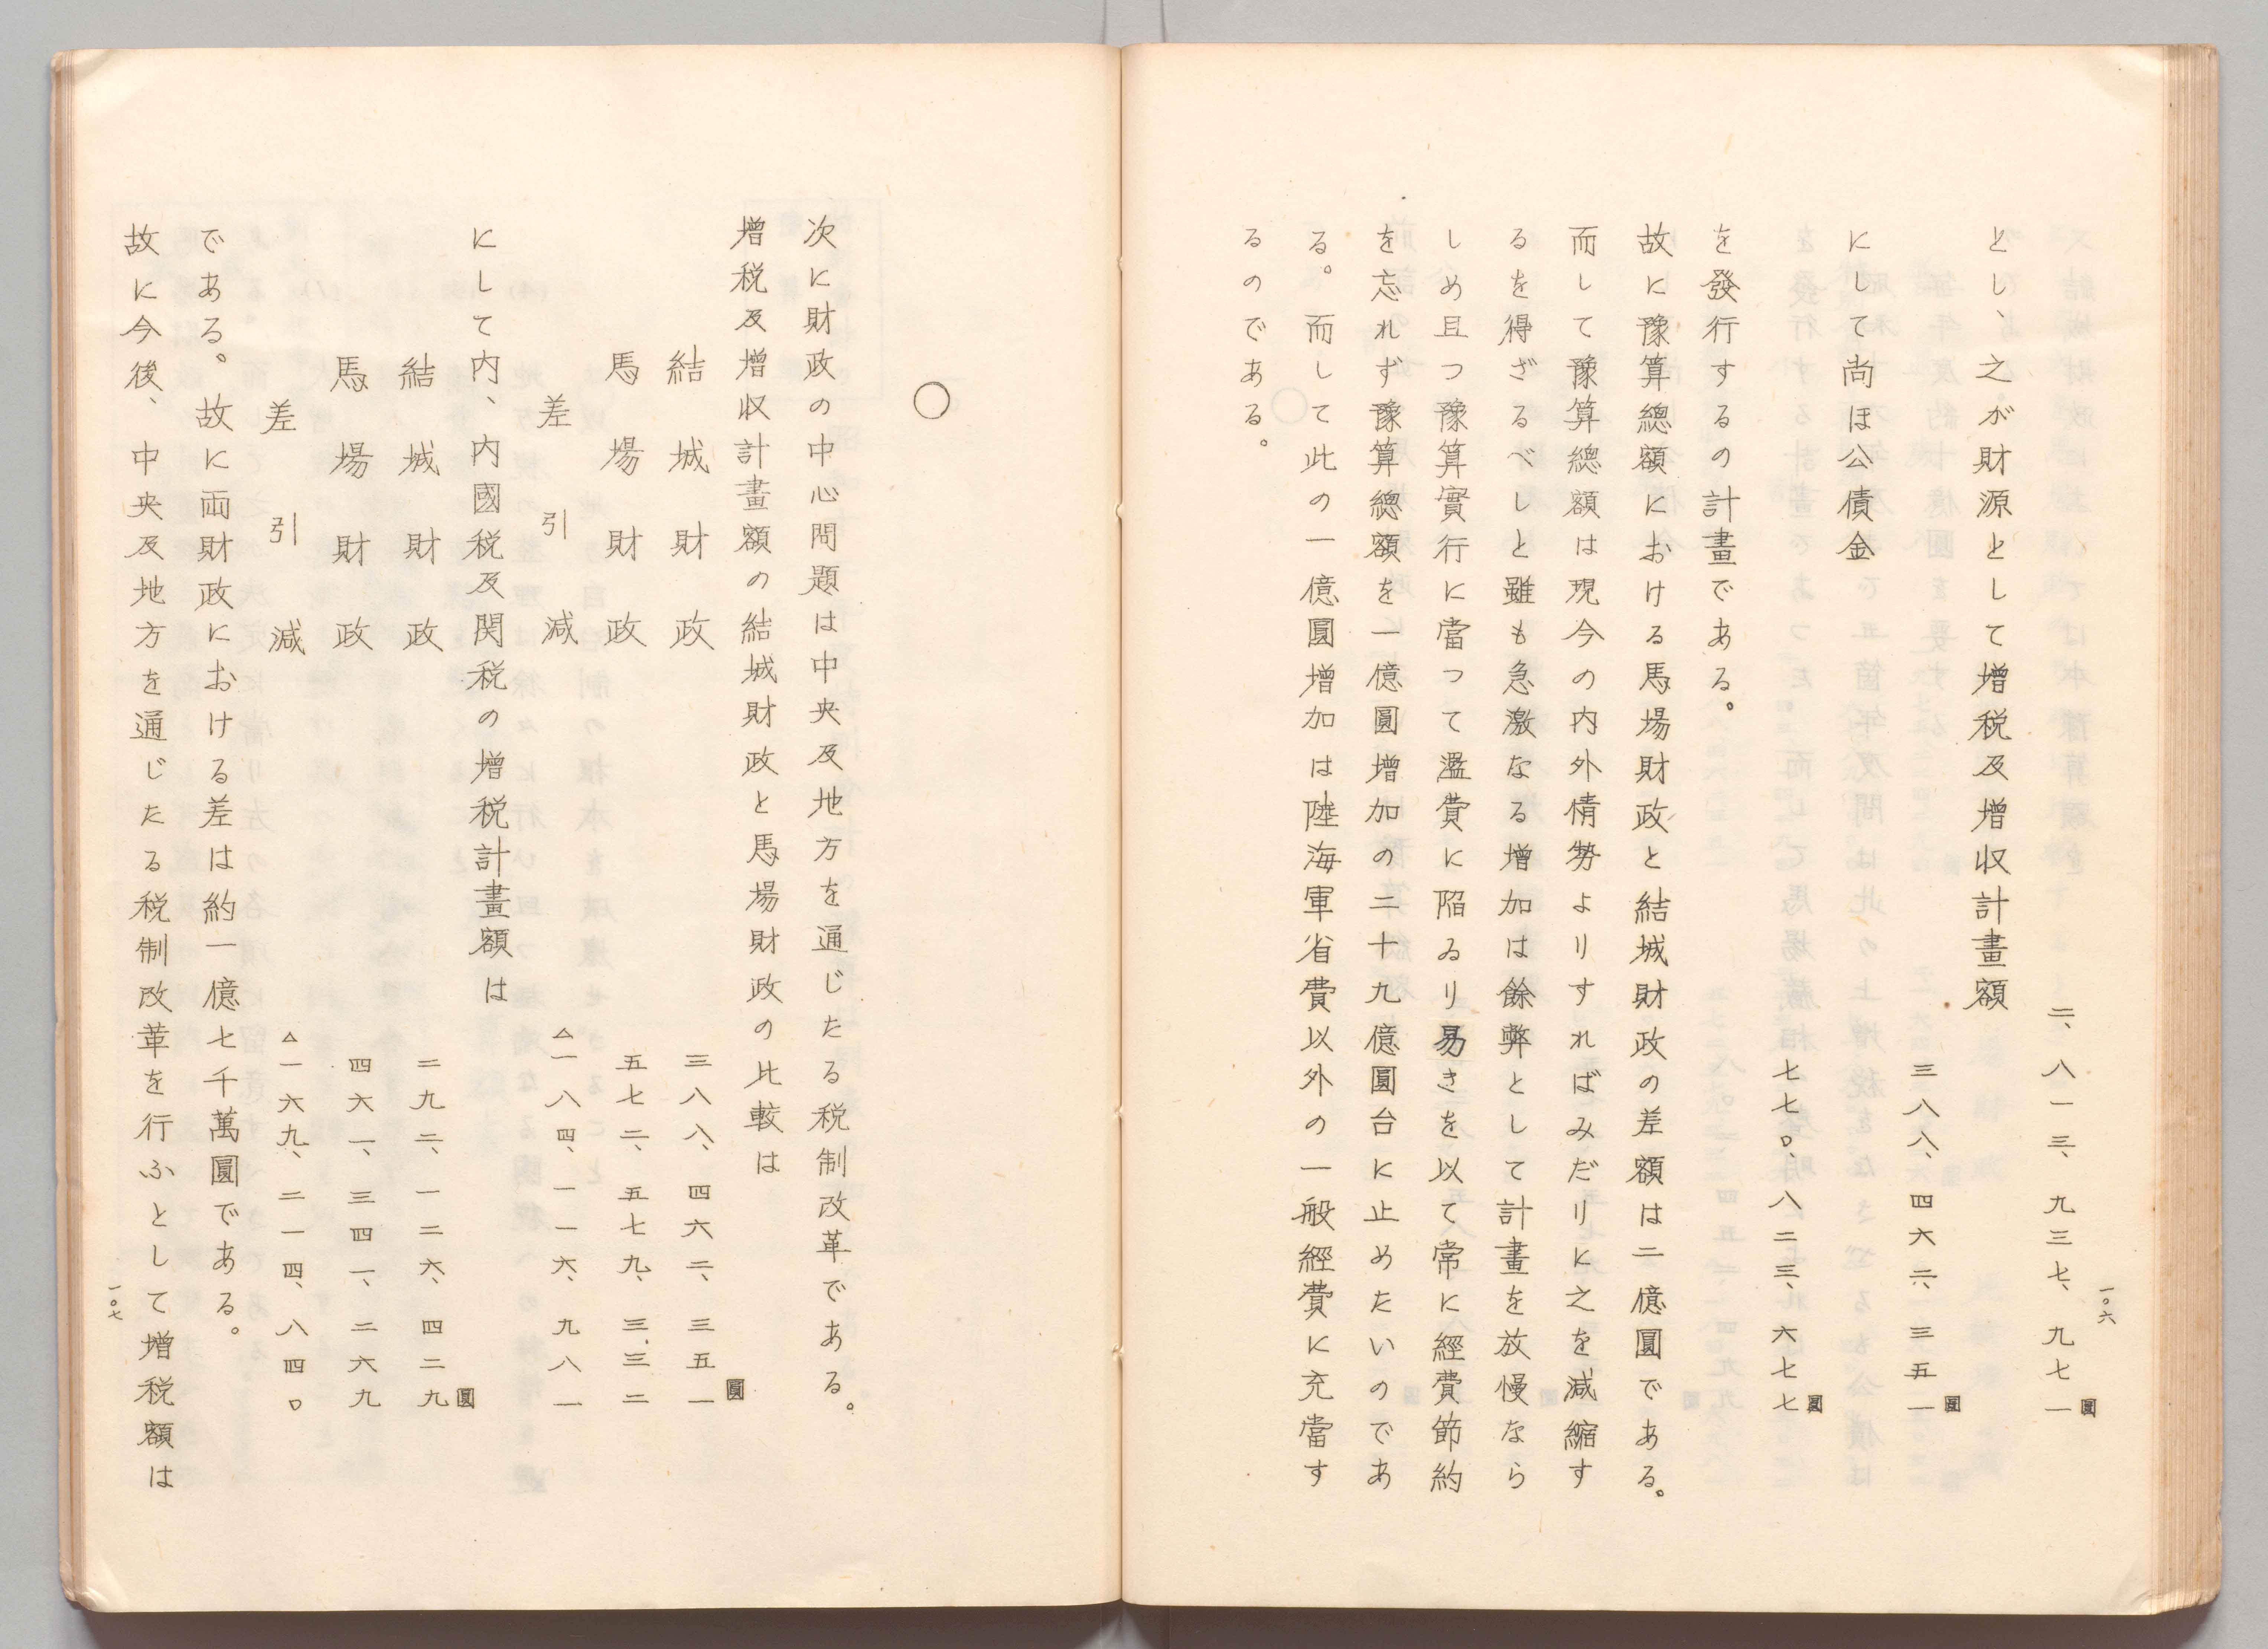 一〇六
二、八一三、九三七、九七一圓
とし、之が財源として増税及増収計畫額
三八八、四六二、三五一圓
にして尚ほ公債金
七七〇、八二三、六七七圓
を發行するの計畫である。
故に豫算總額における馬場財政と結城財政の差額は二億圓である。
而して豫算總額は現今の内外情勢よりすればみだりに之を減縮す
るを得ざるべしと雖も急激なる増加は餘弊として計畫を放慢なら
しめ且つ豫算實行に當つて濫費に陥ゐり易きを以て常に經費節約
を忘れず豫算總額を一億圓増加の二十九億圓台に止めたいのであ
る。而して此の一億圓増加は陸海軍省費以外の一般經費に充當す
るのである。
○
次に財政の中心問題は中央及地方を通じたる税制改革である。
増税及増収計畫額の結城財政と馬場財政の比較は
結城財政 三八八、四六二、三五一圓
馬場財政 五七二、五七九、三三二
差引減 △一八四、一一六、九八一
にして内、内國税及関税の増税計畫額は
結城財政 二九二、一二六、四二九圓
馬場財政 四六一、三四一、二六九
差引減 △一六九、二一四、八四〇
である。故に両財政における差は約一億七千萬圓である。
故に今後、中央及地方を通じたる税制改革を行ふとして増税額は
一〇七